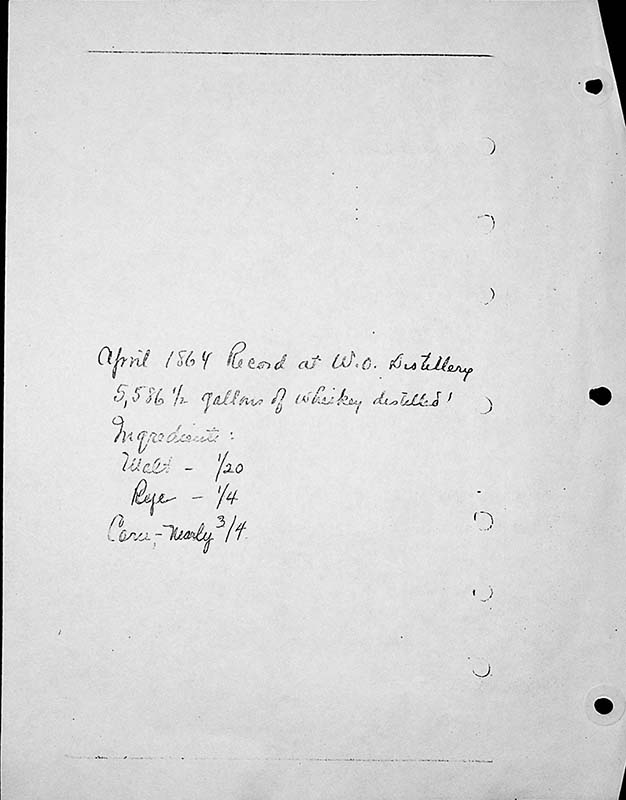 April 1864 Record at W.O. Distillery
5,586 1/2 gallons of whiskey distilled!
Ingredients:
Malt - 1/20
Rye - 1/4
Corn, - Nearly 3/4